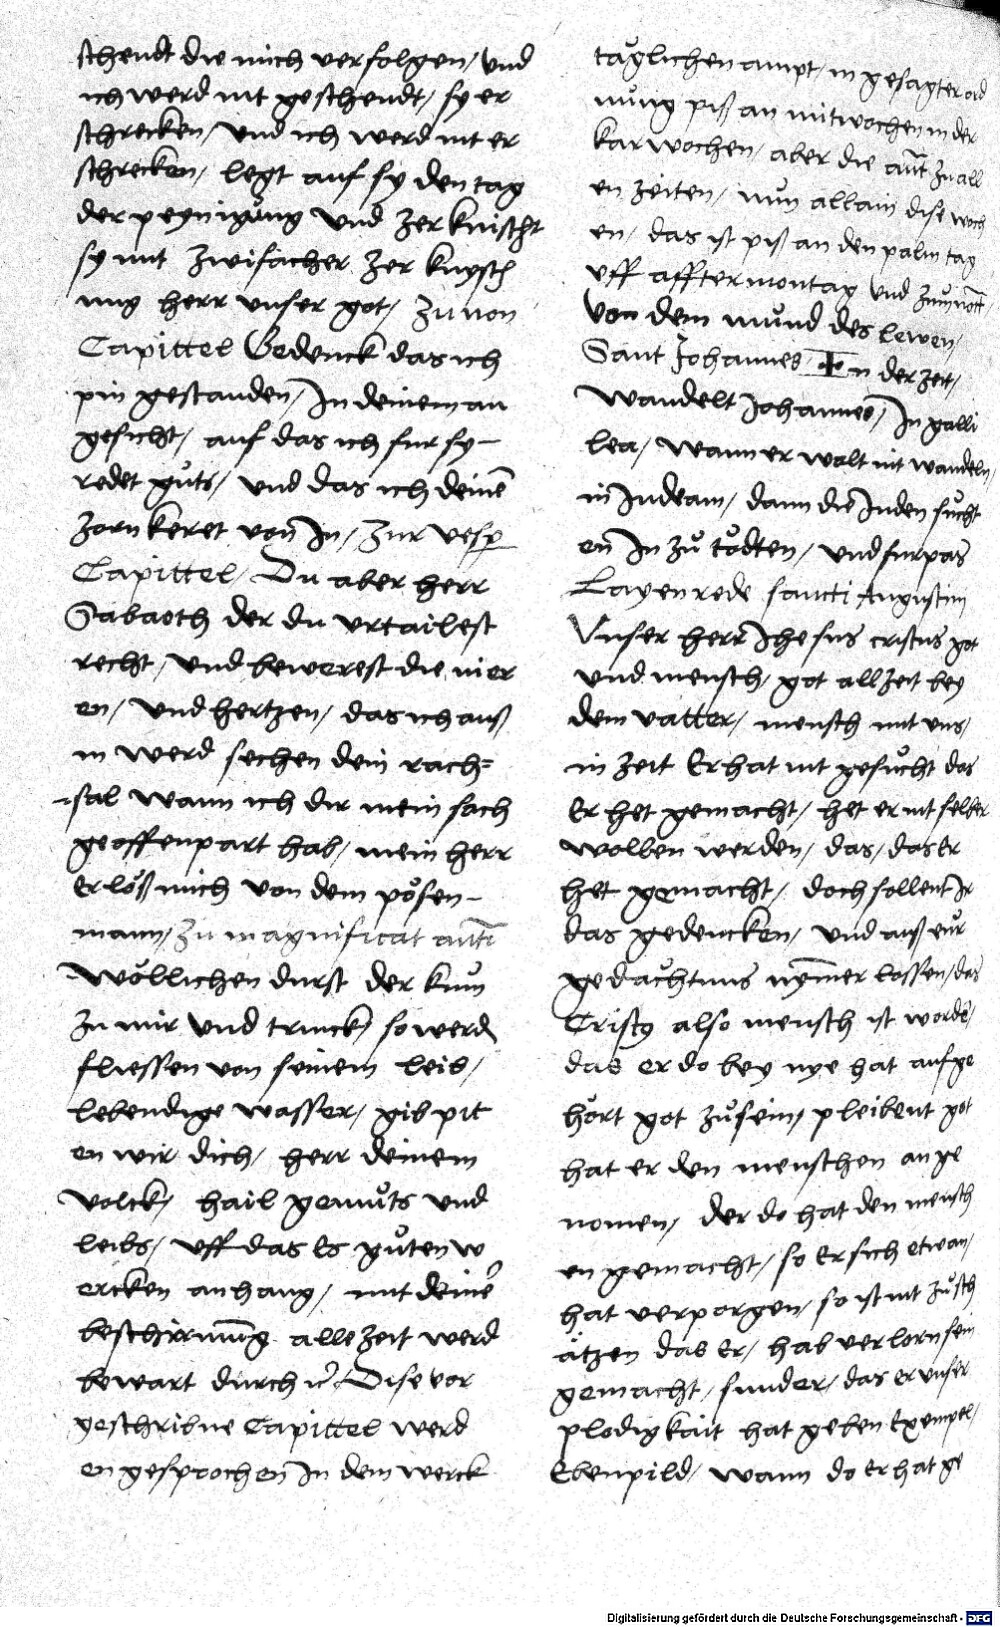 schendt die mich verfolgen/ vnd
ich werd nit geschendt/ sy er
schrecken/ vnd ich werd nit er
schrecken/ legt auf sy den tag
der peynigŭng vnd zerknischt
sy mit zwifacher zerknysch
ung herr vnser got/ zu non
Capittel Gedenck das ich
pin gestanden/ In deinem an
gesicht/ auf das ich fur sy-
redet gůts/ vnd das ich deinē
zorn keret von In/ zur vesp̄
Capittel/ Du aber herr
Sabaoth der du vrtailest
recht/ vnd bewerest die nier
en/ vnd hertzen/ das ich auß
in werd sechen dein rach=
-sal wann ich dir mein sach
geoffenpart hab/ mein herr
erlöß mich von dem pösen-
mann/ zu magnificat antī
-wöllichen durst der kum
zu mir vnd trinck/ so werd
fliessen von seinem leib/
lebendige wasser/ gib pit
en wir dich/ herr deinem
volck/ hail gemůts vnd
leibs/ vff das Es gůten w
ercken anhang/ mit deinē
beschirmūng alle zeit werd
bewart durch Dise vor
geschribne Capittel werd
en gesprochen In dem werck
täglichen ampt/ in gesagter ord
nŭng piß an mitwochen in der
karwochen/ aber die ant̄ zu all
en zeiten/ nun allain dise woch
en/ das ist piß an den palm tag
vff afftermontag vnd
Von dem mŭnd des lewen/
Sant Johannes In der zeit/
wandelt Johannes/ In galli
lea/ wann er wolt nit wandeln/
in Judeam/ dann die Juden sůcht
en In zů tödten/ vnd furpas
Layenrede sancti Augustini
Vnser herr Jhesus cristus got
vnd mensch/ got allzeit bey
dem vatter/ mensch mit vns/
in zeit Er hat nit gesůcht das
Er het gemacht/ het er nit selber
wollen werden/ das/ das Er
het gemacht/ doch sollent Ir
das gedencken/ vnd auß eŭr
gedächtnus nȳmer lossen/ das
Cristus also mensch ist wordē/
das er do bey nye hat aufge
hört got zůsein/ pleibent got
hat er den menschen ange
nomen/ der do hat den mensch
en gemacht/ so Er sich etwan/
hat verporgen/ so ist nit zůsch
ätzen das Er/ hab verlorn sein
gemacht/ sunder/ das er vnser
plodigkait hat geben Exempel/
Ebenpild/ wann do Er hat ge
Digitalisierung gefördert durch die Deutsche Forschungsgemeinschaft - DFG